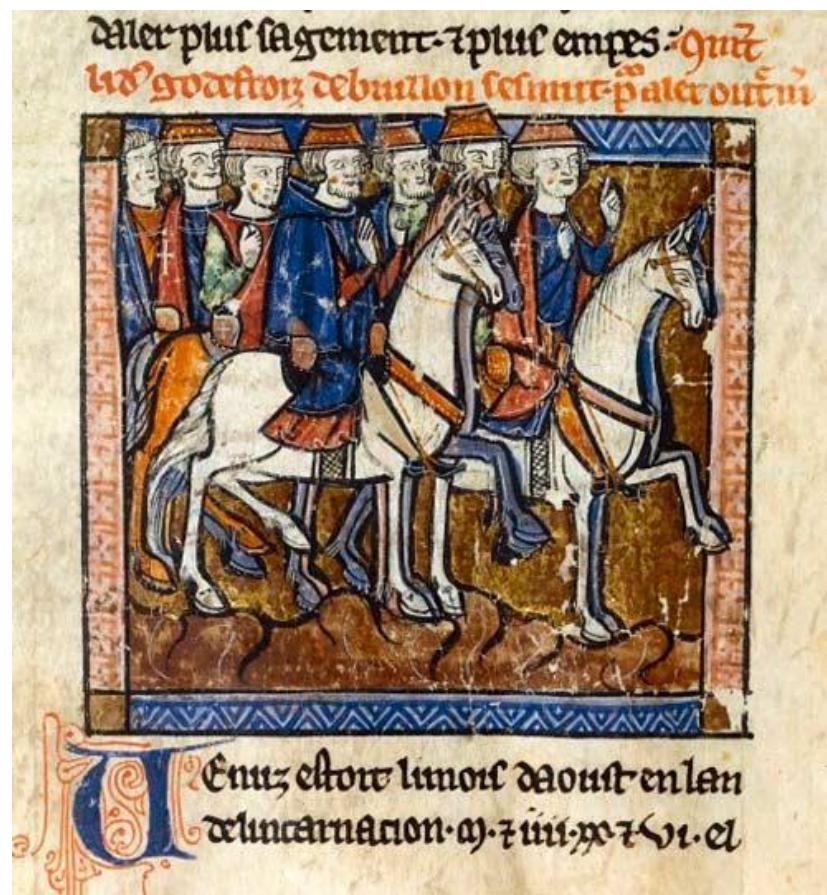 daler plus sagement· ⁊ plus empes· Quāt
li dˀ godefroiz de buillon sesmut· pˀ aler out̃ mˀ
Uenuz estoit li mois daoust en lan
de lincarnacion· m· ⁊ iiii· xx· ⁊ vi· el